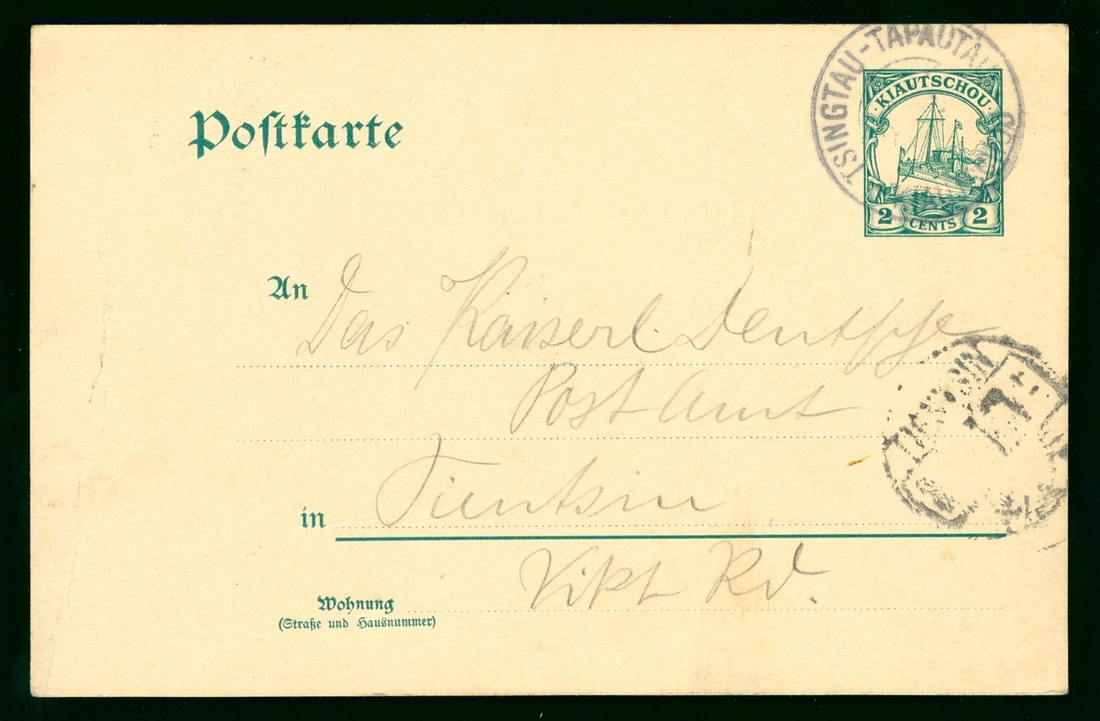 TSINGTAU-TAPAUTAU
KIAUTSCHOU
2 CENTS 2
Postkarte
An Das Kaiserl. Deutsche
Post Amt
in Tientsin
Vikt Rd.
Wohnung
(Straße und Hausnummer)